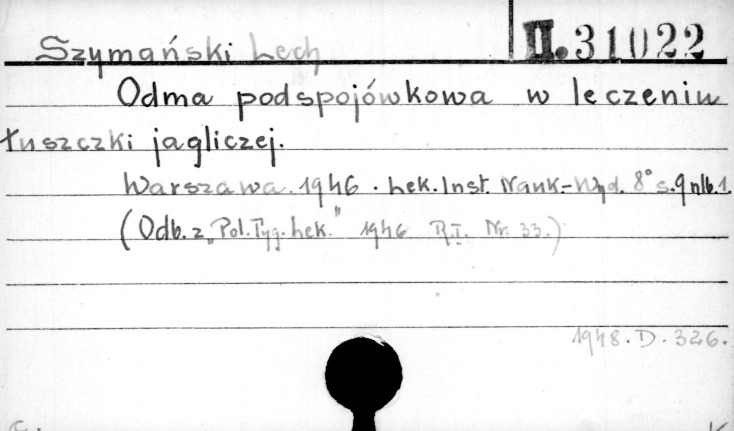 II. 31022
Szymański Lech
Odma podspojówkowa w leczeniu
łuszczki jagliczej.
Warszawa. 1946. Lek. Inst. Nauk.-Wyd. 8° s. 9 nlb. 1.
(Odb. z „Pol. Tyg. Lek." 1946 R.I. Nr. 33.)
1948. D. 326.